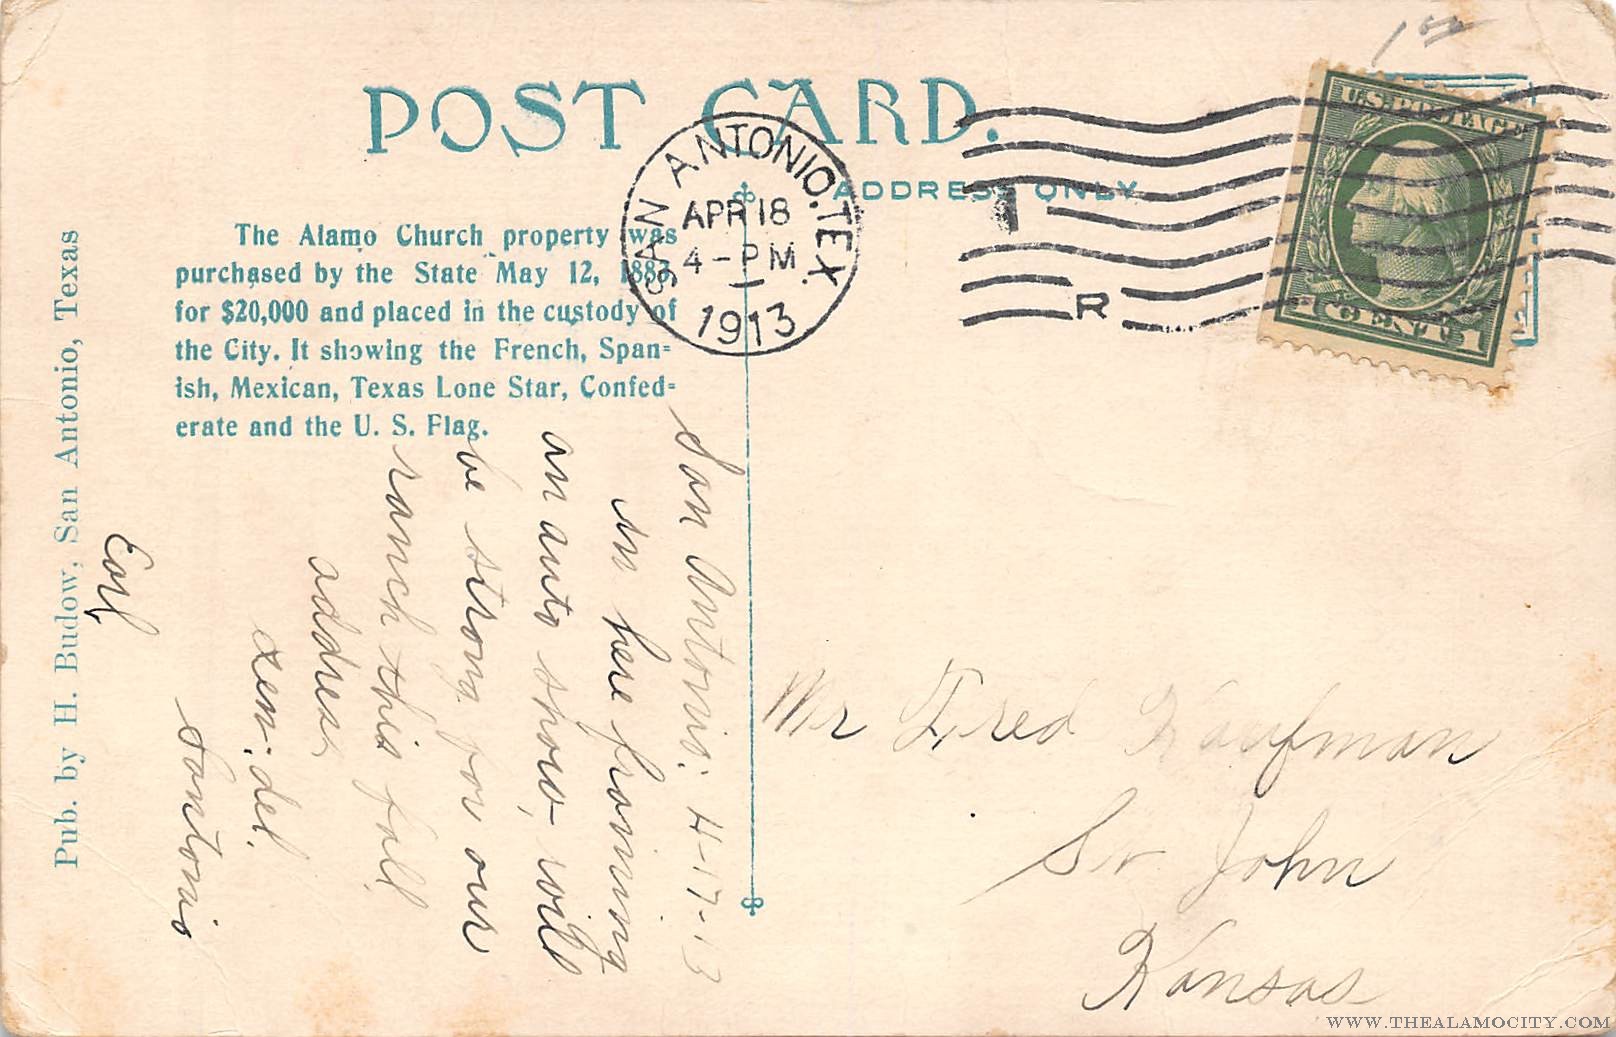 POST CARD.
ADDRESS ONLY
The Alamo Church property was
purchased by the State May 12, 1883
for $20,000 and placed in the custody of
the City. It showing the French, Span=
ish, Mexican, Texas Lone Star, Confed=
erate and the U. S. Flag.
Pub. by H. Budow, San Antonio, Texas
SAN ANTONIO. TEX.
APR 18
4-PM
1913
R
U.S. POSTAGE
1 CENT 1
San Antonio. 4-17-13
in here
an auto show, will
be strong for our
ranch this fall.
address,
gen. del.
Santonio
Earl
Mr Fred Kaufman
St John
Kansas
WWW.THEALAMOCITY.COM